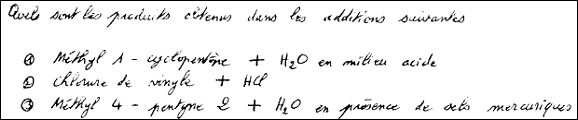 Quels sont les produits obtenus dans les additions suivantes
① Méthyl 1 - cyclopentène + H₂O en milieu acide
② Chlorure de vinyle + HCl
③ Méthyl 4 - pentyne 2 + H₂O en présence de sels mercuriques